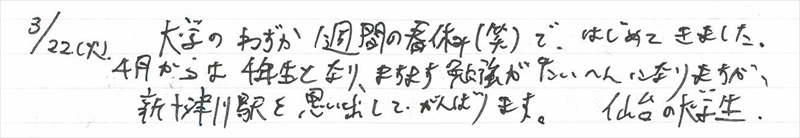 3/22(火) 大学のわずか1週間の春休み(笑)で、はじめてきました。
4月からは4年生となり、ますます勉強がたいへんになりますが、
新十津川駅を思い出して、がんばります。 仙台の大学生.